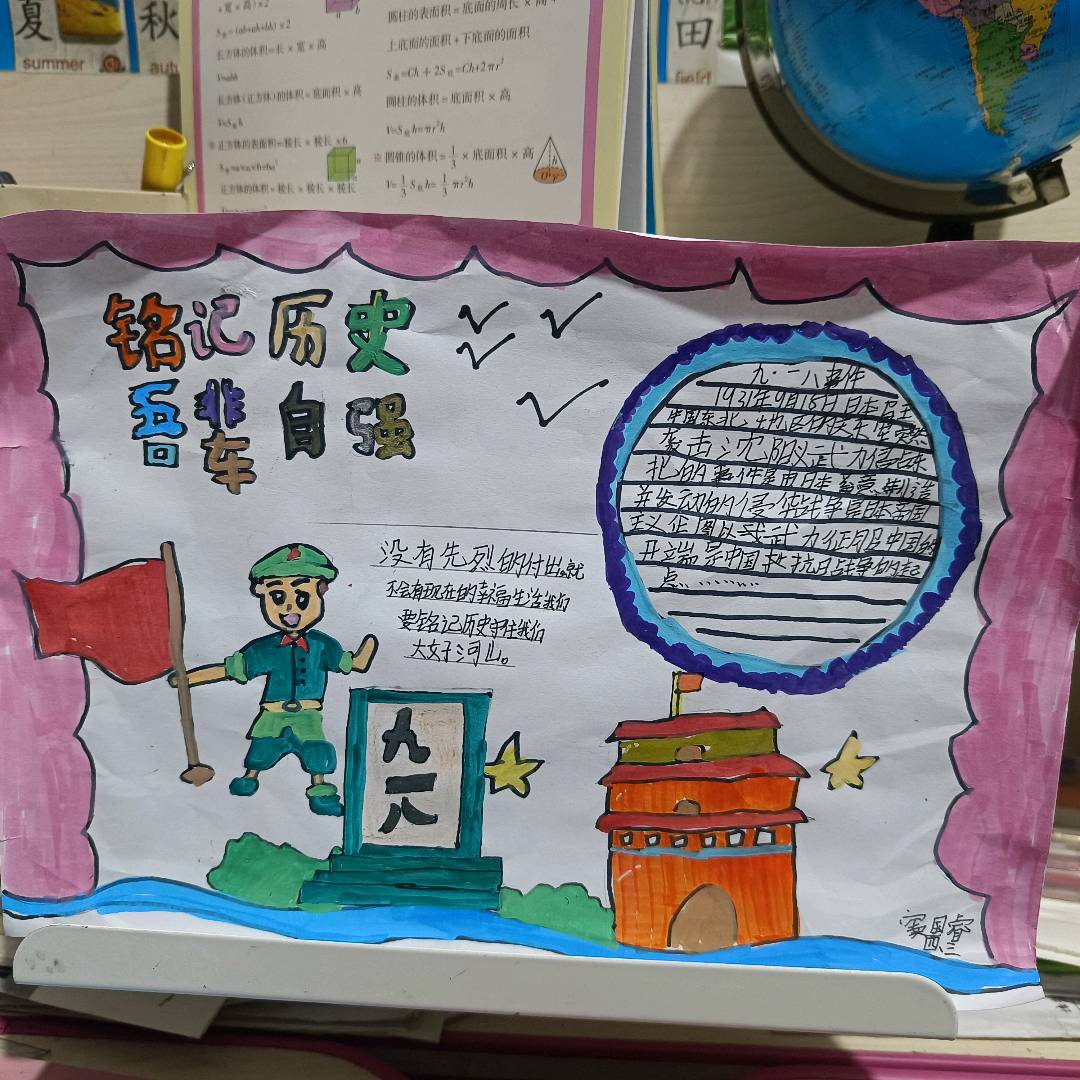 夏
summer
秋
田
+宽×高)×2
S表=(ab+ah+bh)×2
长方体的体积=长×宽×高
V=abh
长方体(正方体)的体积=底面积×高
V=S底h
※正方体的表面积=棱长×棱长×6
S表=a×a×6=6a²
正方体的体积=棱长×棱长×棱长
圆柱的表面积=底面的周长×高+
上底面的面积+下底面的面积
S表=Ch+2S底=Ch+2πr²
圆柱的体积=底面积×高
V=S底h=πr²h
※圆锥的体积=1/3×底面积×高
V=1/3S底h=1/3πr²h
铭记历史
吾辈自强
九·一八事件
1931年9月18日日本
中国东北
袭击沈阳以武力侵占东
北的事件是由日本蓄意制造
并发动的侵华战争是日本帝国
主义企图以武武力征服中国的
开端是中国 抗日战争的起
点.........
没有先烈的付出。就
不会有现在的幸福生活我们
要铭记历史守住我们
大好河山。
九一八
国睿
四.三